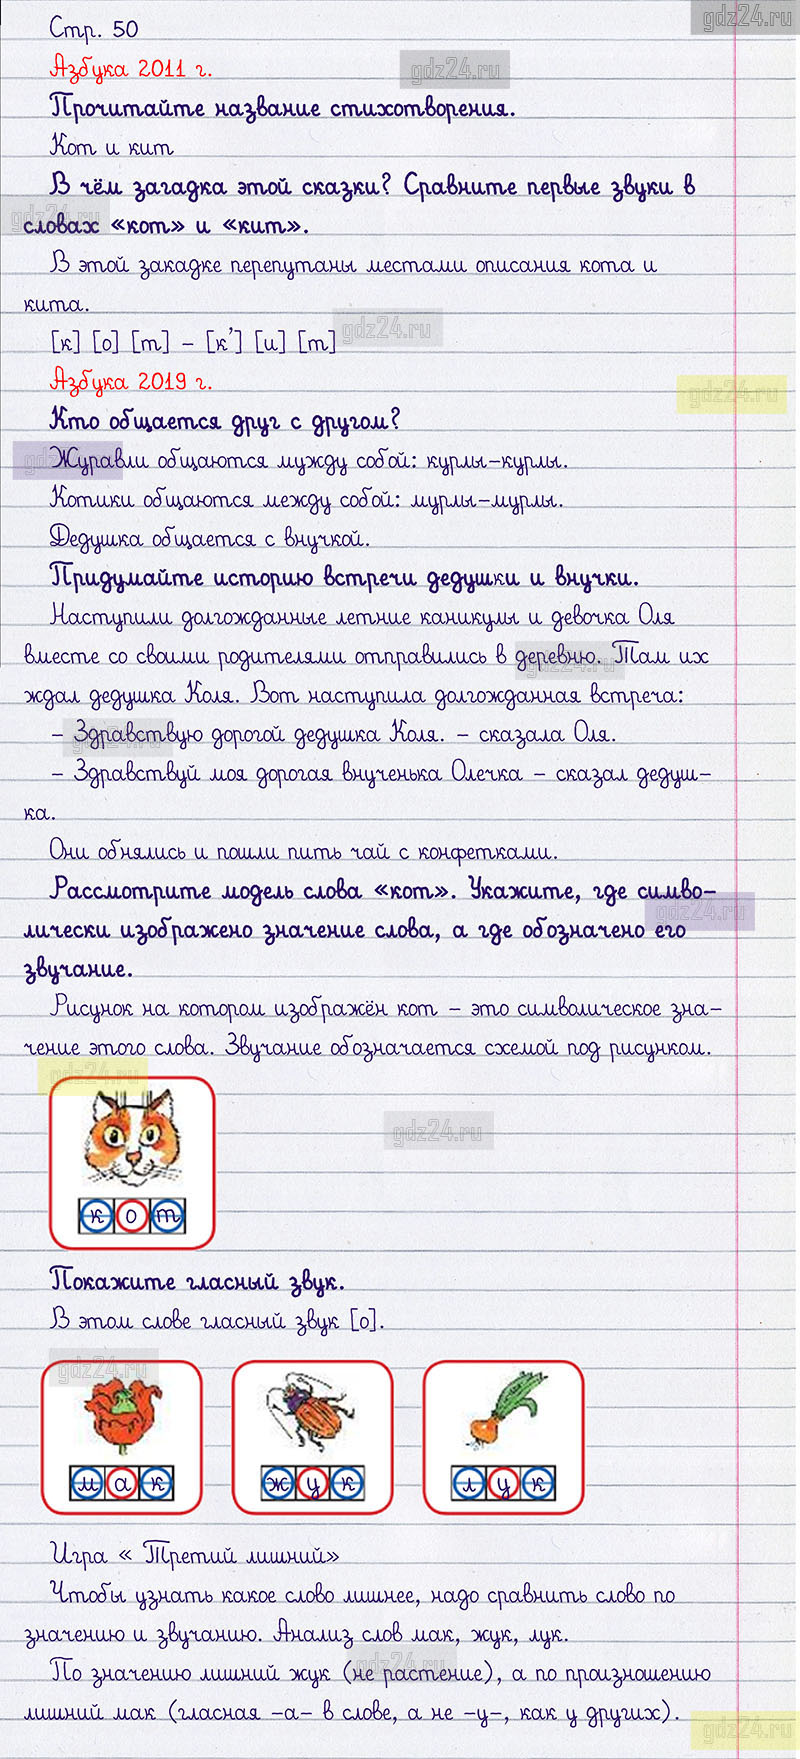 gdz24.ru
Стр. 50
Азбука 2011 г.
gdz24.ru
Прочитайте название стихотворения.
Кот и кит
В чём загадка этой сказки? Сравните первые звуки в
gdz24.ru
словах «кот» и «кит».
В этой закадке перепутаны местами описания кота и
кита.
gdz24.ru
[к] [о] [т] – [к’] [и] [т]
Азбука 2019 г.
gdz24.ru
Кто общается друг с другом?
gdz24.ru
Журавли общаются мужду собой: курлы-курлы.
Котики общаются между собой: мурлы-мурлы.
Дедушка общается с внучкой.
Придумайте историю встречи дедушки и внучки.
Наступили долгожданные летние каникулы и девочка Оля
вместе со своими родителями отправились в деревню. Там их
gdz24.ru
ждал дедушка Коля. Вот наступила долгожданная встреча:
– Здравствую дорогой дедушка Коля. – сказала Оля.
gdz24.ru
– Здравствуй моя дорогая внученька Олечка – сказал дедуш-
ка.
Они обнялись и пошли пить чай с конфетками.
Рассмотрите модель слова «кот». Укажите, где симво-
gdz24.ru
лически изображено значение слова, а где обозначено его
звучание.
Рисунок на котором изображён кот – это символическое зна-
чение этого слова. Звучание обозначается схемой под рисунком.
gdz24.ru
gdz24.ru
к о т
Покажите гласный звук.
В этом слове гласный звук [о].
gdz24.ru
м а к ж у к л у к
Игра « Третий лишний»
Чтобы узнать какое слово лишнее, надо сравнить слово по
значению и звучанию. Анализ слов мак, жук, лук.
gdz24.ru
По значению лишний жук (не растение), а по произношению
лишний мак (гласная -а- в слове, а не -у-, как у других).
gdz24.ru